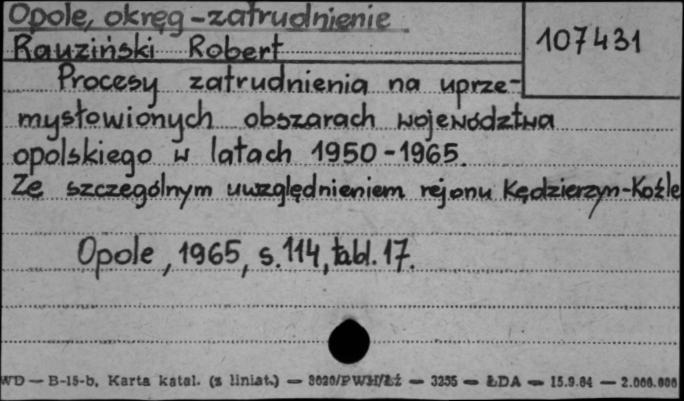 Opole, okręg - zatrudnienie
107431
Rauziński Robert
Procesy zatrudnienia na uprze-
mysłowionych obszarach województwa
opolskiego w latach 1950-1965.
Ze szczególnym uwzględnieniem rejonu Kędzierzyn-Koźle
Opole, 1965, s. 114, tabl. 17.
WD — B-15-b, Karta katal. (z liniat.) — 8020/PWH/Łż — 3235 — ŁDA — 15.9.64 — 2.000.000